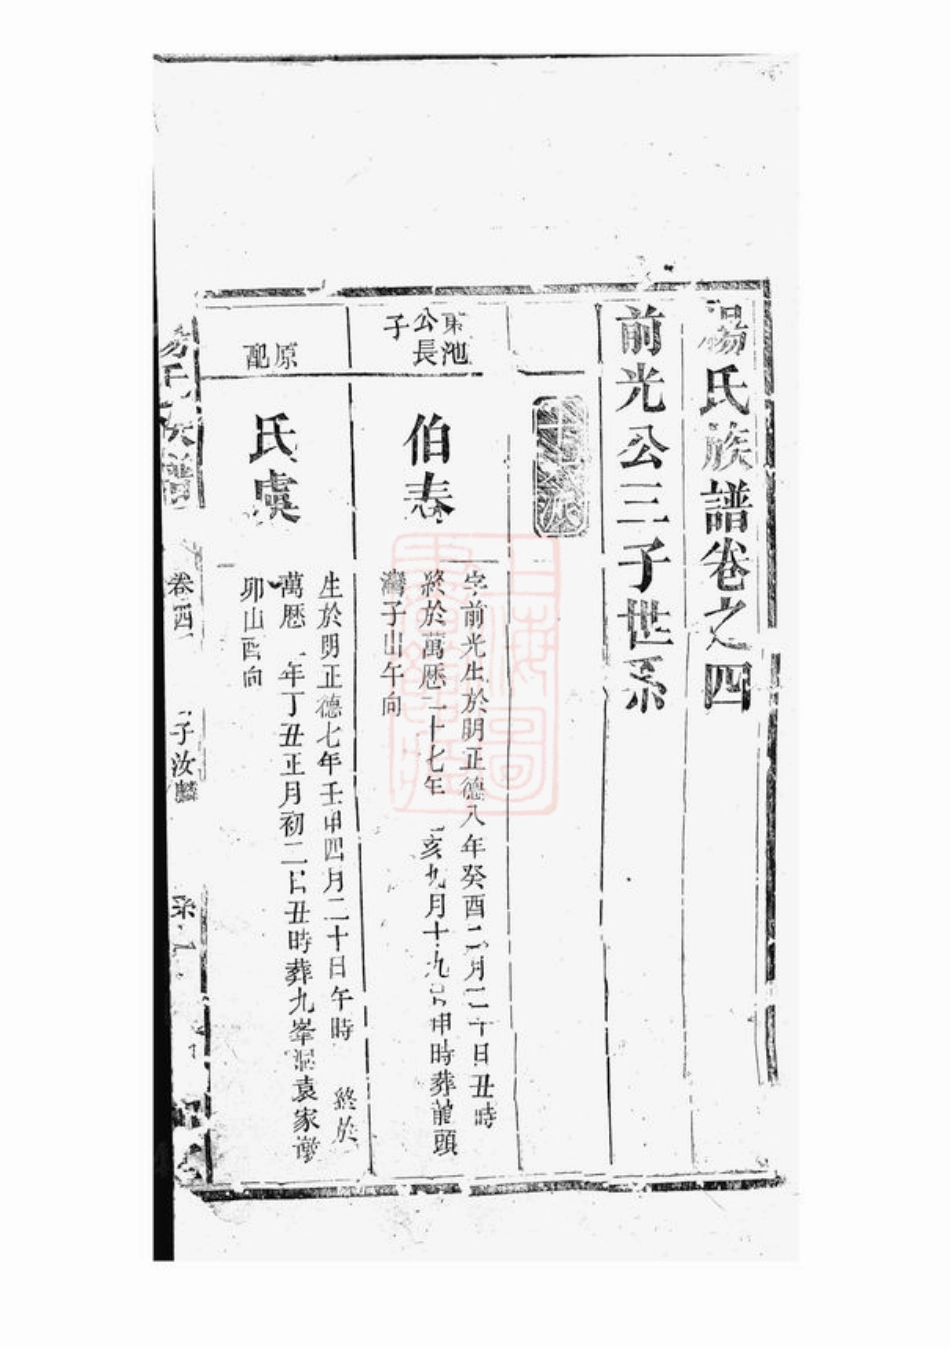 湯氏族譜卷之四
前光公三子世系
東池公長子
伯春
字前光生於明正德八年癸酉二月二十日丑時
終於萬厯二十七年 亥九月十九日申時葬龍頭
灣子山午向
原配
氏虞
生於明正德七年壬申四月二十日午時 終於
萬厯 年丁丑正月初二日丑時葬九峯洞袁家灣
卯山酉向
氏族譜
卷四
子汝麟
上海圖書館藏